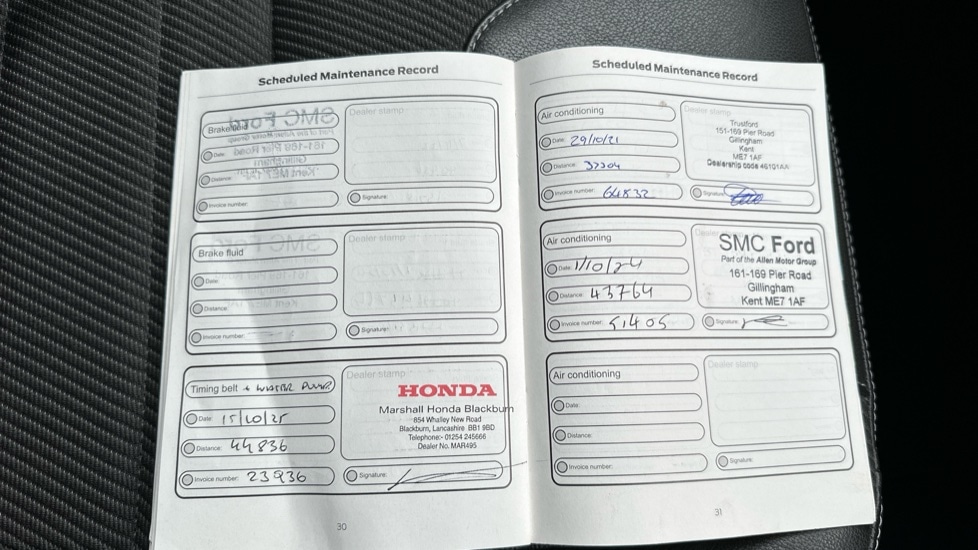 Scheduled Maintenance Record
Brake fluid
Dealer stamp
Date:
Distance:
Invoice number:
Signature:
Brake fluid
Dealer stamp
Date:
Distance:
Invoice number:
Signature:
Timing belt + WATER PUMP
Dealer stamp
HONDA
Marshall Honda Blackburn
854 Whalley New Road
Blackburn, Lancashire BB1 9BD
Telephone:- 01254 245666
Dealer No. MAR495
Date: 15/10/25
Distance: 44836
Invoice number: 23936
Signature:
30
Scheduled Maintenance Record
Air conditioning
Dealer stamp
Trustford
151-169 Pier Road
Gillingham
Kent
ME7 1AF
Dealership code 46101AA
Date: 29/10/21
Distance: 37304
Invoice number: 64832
Signature:
Air conditioning
Dealer
SMC Ford
Part of the Allen Motor Group
161-169 Pier Road
Gillingham
Kent ME7 1AF
Date: 1/10/24
Distance: 43764
Invoice number: 51405
Signature:
Air conditioning
Dealer stamp
Date:
Distance:
Invoice number:
Signature:
31